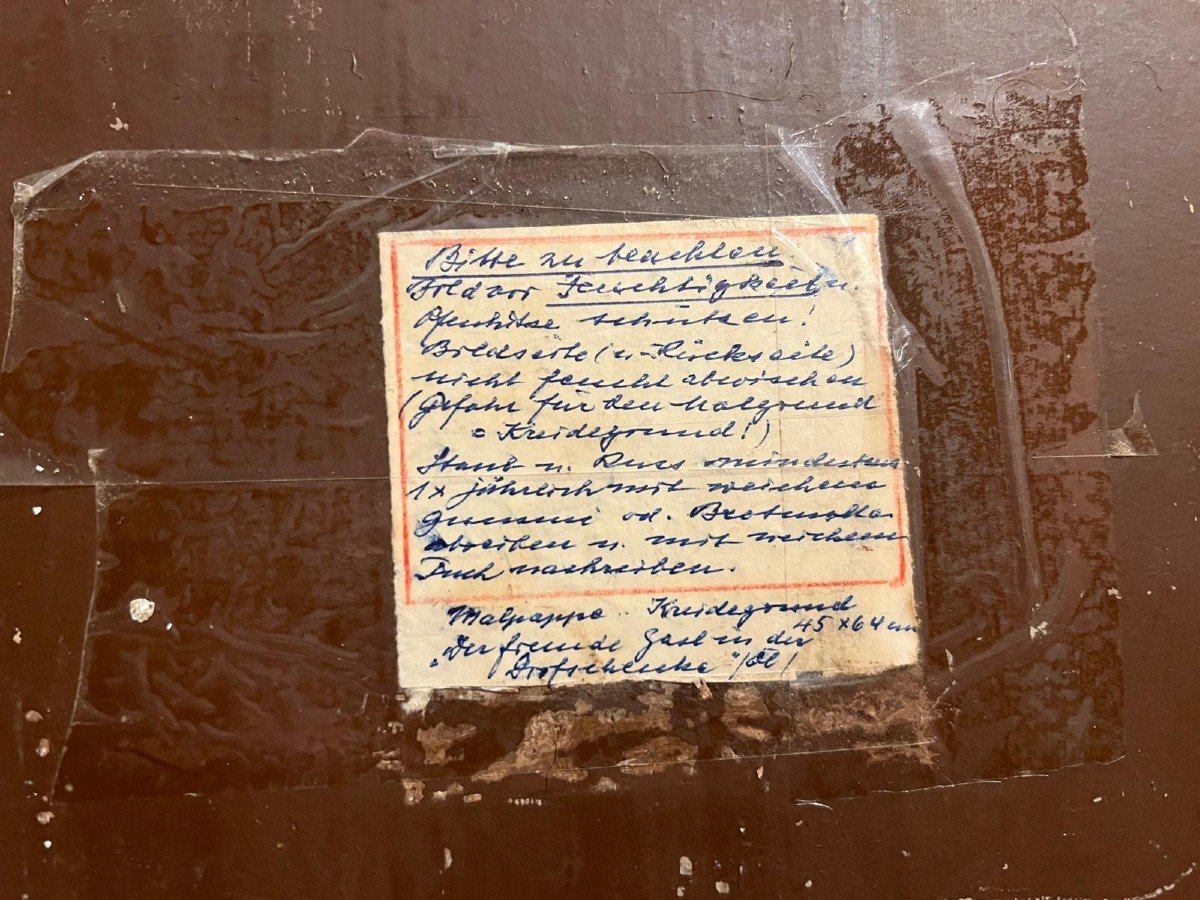 Bitte zu beachten
Bild vor Feuchtigkeit u.
Ofenhitze schützen!
Bildseite (u. Rückseite)
nicht feucht abwischen
(Gefahr für den Malgrund
= Kreidegrund!)
Staub u. Russ mindestens
1x jährlich mit weichem
Gummi od. Brotmolle
abreiben u. mit weichem
Tuch nachreiben.
Malpappe Kreidegrund
45 x 64 cm
"Der fremde Gast in der
Dorfschenke" /Öl/